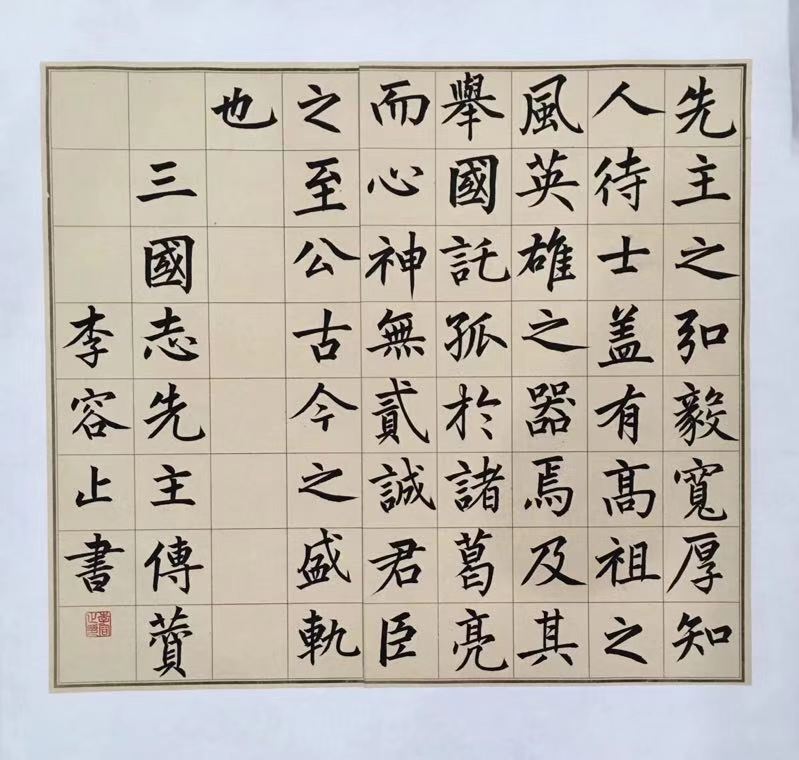 先主之弘毅寬厚知
人待士盖有髙祖之
風英雄之器焉及其
舉國託孤於諸葛亮
而心神無貳誠君臣
之至公古今之盛軌
也
三國志先主傳賛
李容止書